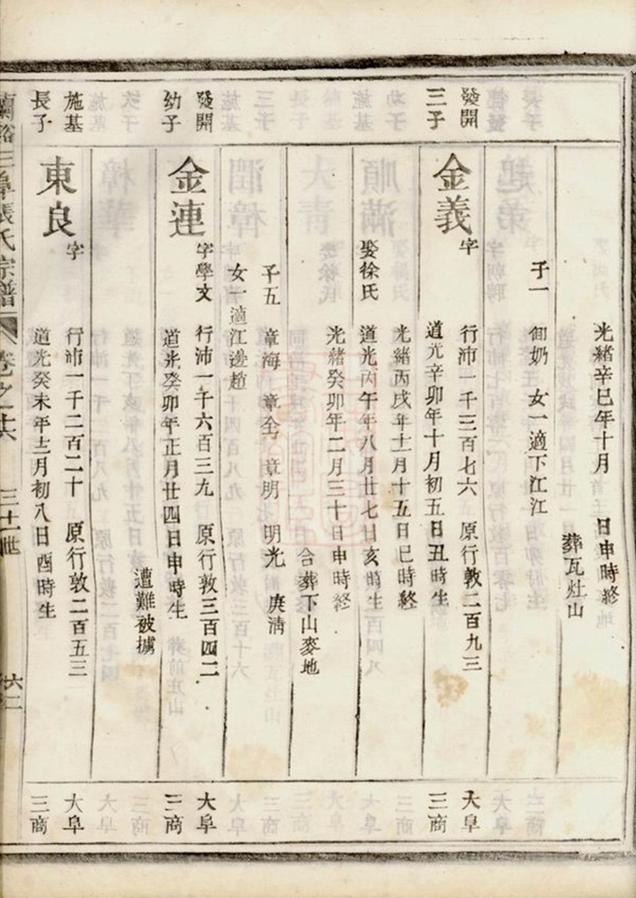 光緒辛巳年十月 日申時終
葬瓦灶山
子一 卸奶 女一適下江江
發開
三子
金義
字 行沛一千三百七六 原行敦二百九三
道光辛卯年十月初五日丑時生
光緒丙戌年十一月十五日巳時終
娶徐氏 道光丙午年八月廿七日亥時生
光緒癸卯年二月三十日申時終
合葬下山麥地
子五 章海 章全 章明 明光 庚淸
女一適江邊趙
發開
幼子
金連
字學文 行沛一千六百三九 原行敦三百四二
道光癸卯年正月廿四日申時生
遭難被擄
施基
長子
東良
字 行沛一千二百二十 原行敦二百五三
道光癸未年十二月初八日酉時生
大阜
三商
大阜
三商
大阜
三商
蘭谿三阜張氏宗譜 卷之 三十一世 六二